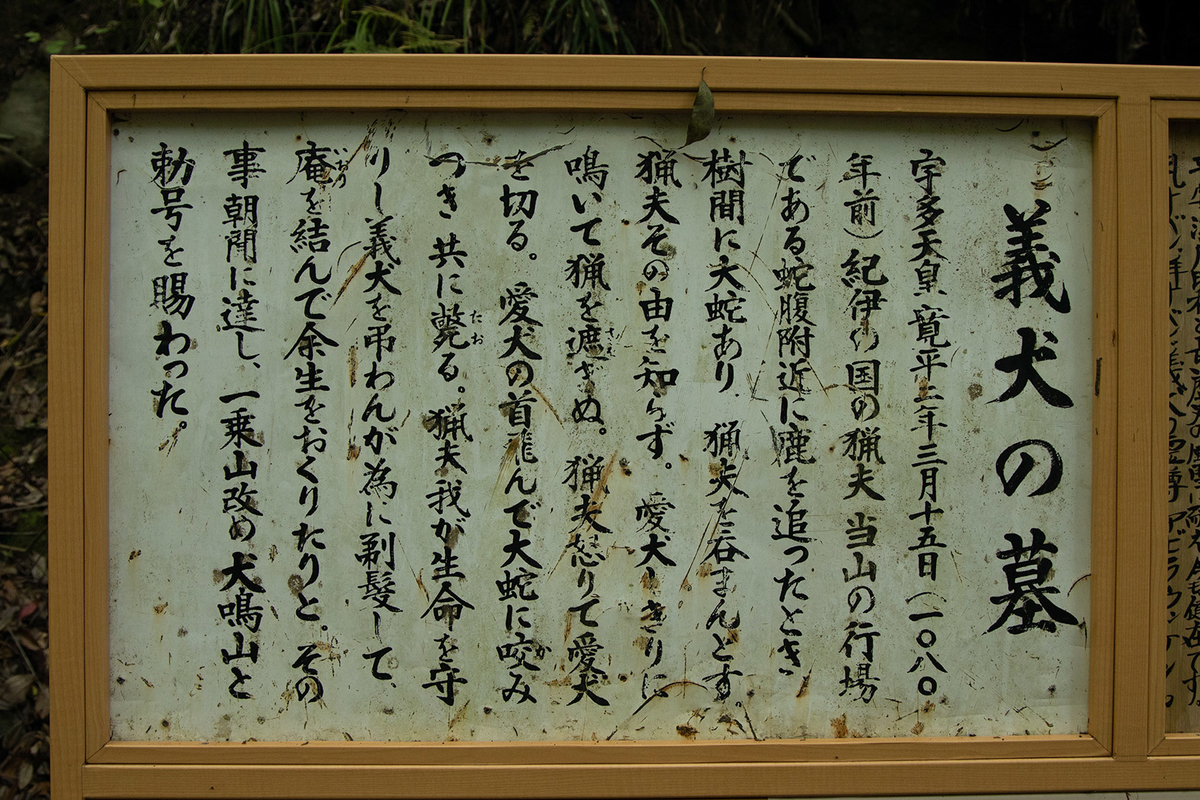 義犬の墓
宇多天皇寛平二年三月十五日(一〇八〇
年前)紀伊の国の猟夫 当山の行場
である蛇腹附近に鹿を追ったとき
樹間に大蛇あり 猟夫を呑まんとす。
猟夫その由を知らず。愛犬しきりに
鳴いて猟を遮ぎぬ。猟夫怒りて愛犬
を切る。愛犬の首飛んで大蛇に咬み
つき 共に斃る。猟夫我が生命を守
りし義犬を弔わんが為に剃髪して、
庵を結んで余生をおくりたりと。その
事 朝聞に達し、一乗山改め犬鳴山と
勅号を賜わった。